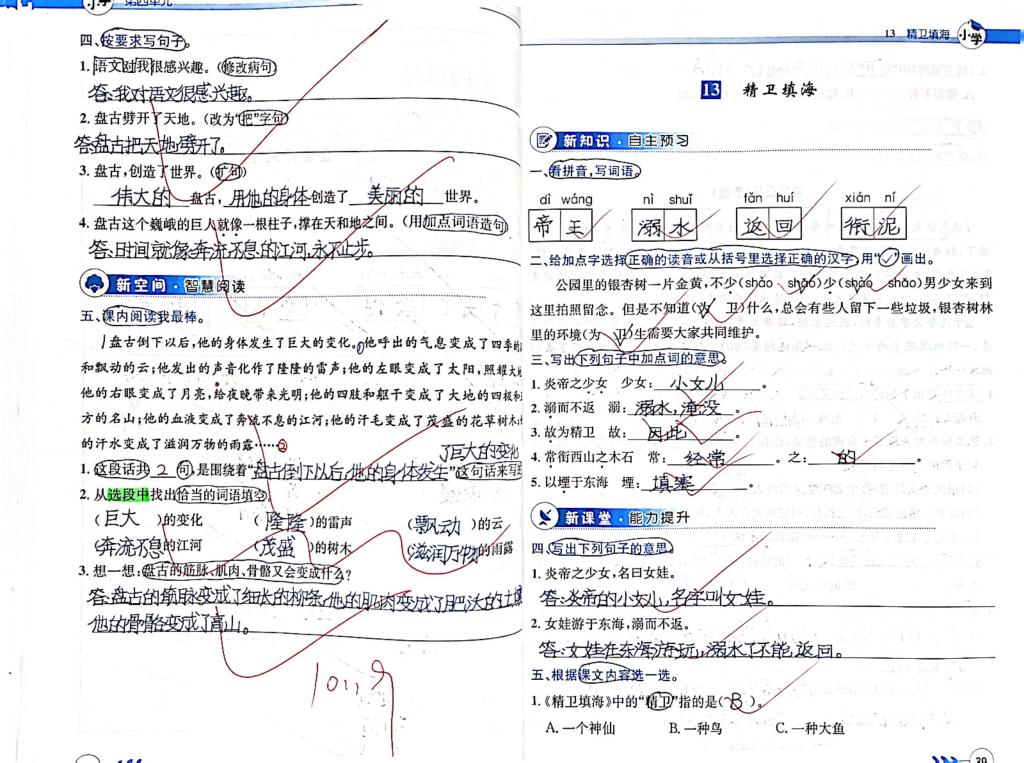 小学 第四单元
四、按要求写句子。
1. 语文对我很感兴趣。(修改病句)
答:我对语文很感兴趣。
2. 盘古劈开了天地。(改为“把”字句)
答:盘古把天地劈开了。
3. 盘古,创造了世界。(扩句)
伟大的 盘古, 用他的身体 创造了 美丽的 世界。
4. 盘古这个巍峨的巨人就像一根柱子,撑在天和地之间。(用加点词语造句)
答:时间就像奔流不息的江河,永不止步。
新空间·智慧阅读
五、课内阅读我最棒。
盘古倒下以后,他的身体发生了巨大的变化。他呼出的气息变成了四季的
和飘动的云;他发出的声音化作了隆隆的雷声;他的左眼变成了太阳,照耀大
他的右眼变成了月亮,给夜晚带来光明;他的四肢和躯干变成了大地的四极和
方的名山;他的血液变成了奔流不息的江河;他的汗毛变成了茂盛的花草树木
的汗水变成了滋润万物的雨露……
了巨大的变化
1. 这段话共 2 句,是围绕着“盘古倒下以后,他的身体发生”这句话来写
2. 从选段中找出恰当的词语填空。
(巨大)的变化 (隆隆)的雷声 (飘动)的云
(奔流不息)的江河 (茂盛)的树木 (滋润万物)的雨露
3. 想一想:盘古的筋脉、肌肉、骨骼又会变成什么?
答:盘古的筋脉变成了细长的柳条,他的肌肉变成了肥沃的土壤
他的骨骼变成了高山。
10.19
13 精卫填海 小学
13 精卫填海
新知识·自主预习
一、看拼音,写词语。
dì wáng nì shuǐ fǎn huí xián ní
帝王 溺水 返回 衔泥
二、给加点字选择正确的读音或从括号里选择正确的汉字,用“✓”画出。
公园里的银杏树一片金黄,不少(shào shǎo)少(shào shǎo)男少女来
到这里拍照留念。但是不知道(为 卫)什么,总会有些人留下一些垃圾,银杏树林
里的环境(为 卫)生需要大家共同维护。
三、写出下列句子中加点词的意思。
1. 炎帝之少女 少女: 小女儿 。
2. 溺而不返 溺: 溺水,淹没 。
3. 故为精卫 故: 因此 。
4. 常衔西山之木石 常: 经常 。 之: 的 。
5. 以堙于东海 堙: 填塞 。
新课堂·能力提升
四、写出下列句子的意思。
1. 炎帝之少女,名曰女娃。
答:炎帝的小女儿,名字叫女娃。
2. 女娃游于东海,溺而不返。
答:女娃在东海游玩,溺水了不能返回。
五、根据课文内容选一选。
1.《精卫填海》中的“精卫”指的是( B )。
A. 一个神仙 B. 一种鸟 C. 一种大鱼
39